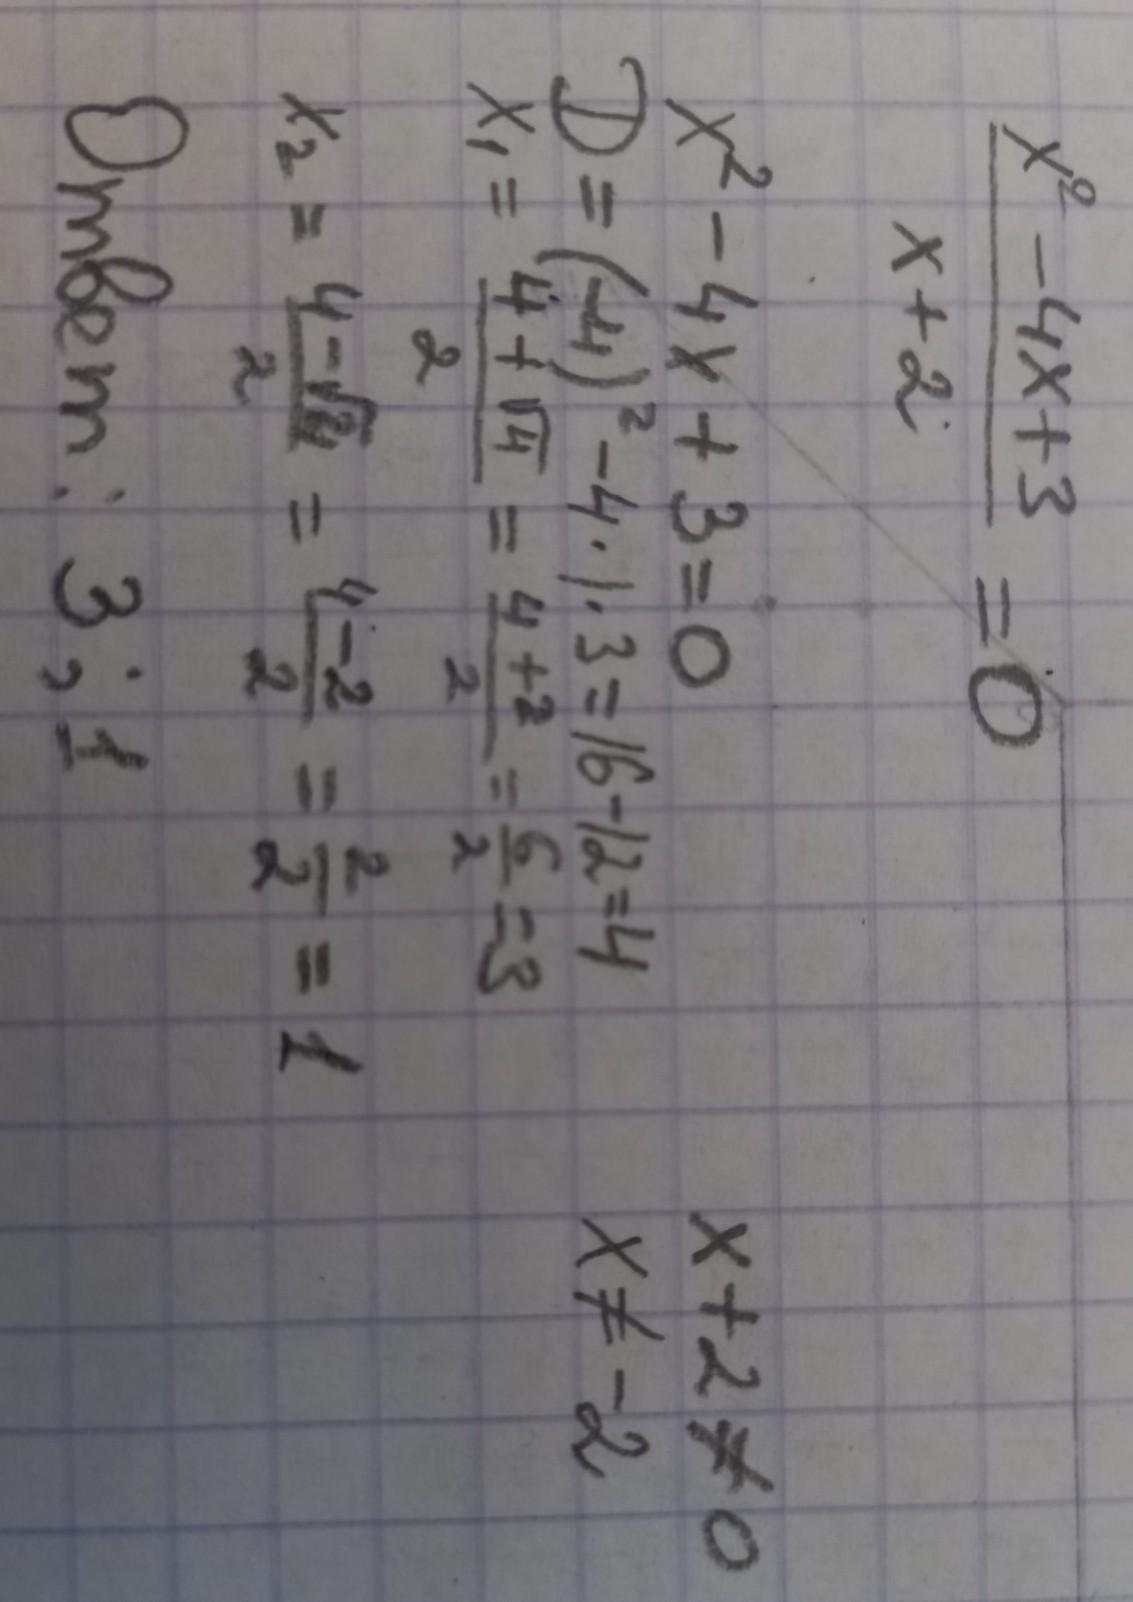 x² - 4x + 3 / x + 2 = 0
x² - 4x + 3 = 0
x + 2 ≠ 0
D = (-4)² - 4 · 1 · 3 = 16 - 12 = 4
x ≠ -2
x₁ = 4 + √4 / 2 = 4 + 2 / 2 = 6 / 2 = 3
x₂ = 4 - √4 / 2 = 4 - 2 / 2 = 2 / 2 = 1
Ответ: 3; 1